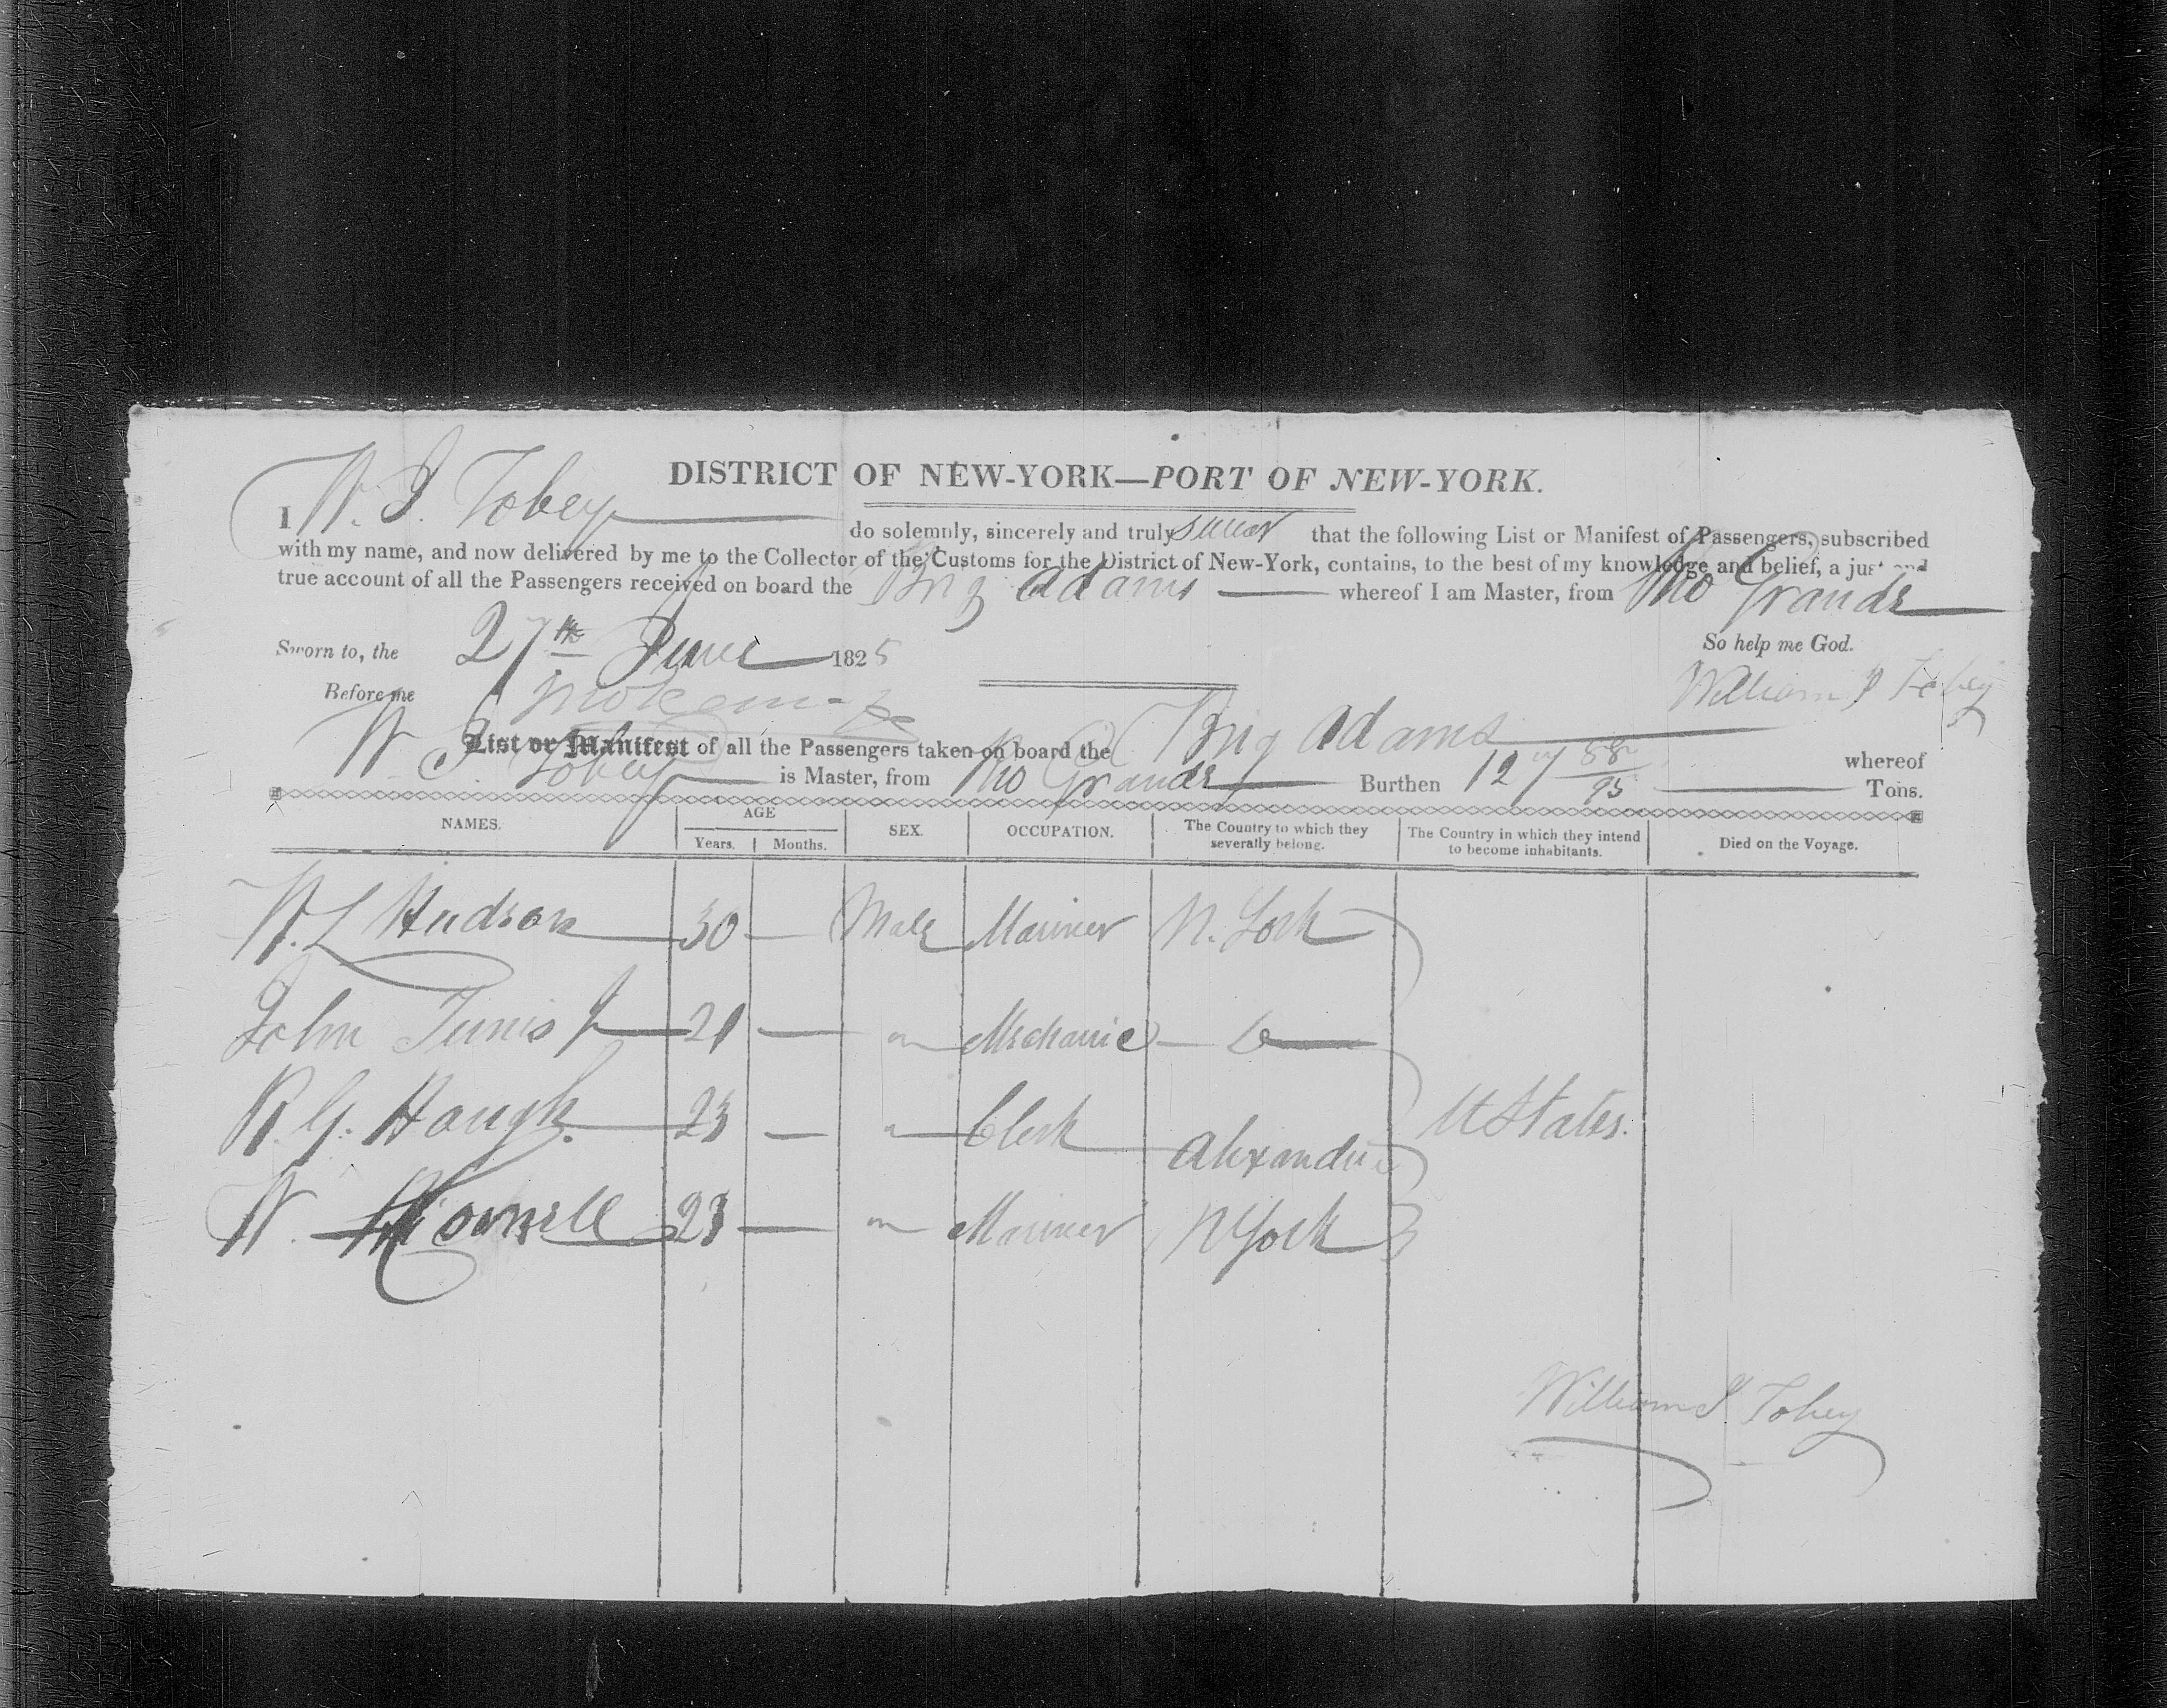 DISTRICT OF NEW-YORK—PORT OF NEW-YORK.
I W. J. Tobey do solemnly, sincerely and truly swear that the following List or Manifest of Passengers, subscribed
with my name, and now delivered by me to the Collector of the Customs for the District of New-York, contains, to the best of my knowledge and belief, a just and
true account of all the Passengers received on board the Brig Adams whereof I am Master, from Rio Grande
Sworn to, the 27th June 1825 So help me God.
Before me William J Tobey
List or Manifest of all the Passengers taken on board the Brig Adams whereof
W J Tobey is Master, from Rio Grande Burthen 127 88/95 Tons.
NAMES. AGE SEX. OCCUPATION. The Country to which they severally belong. The Country in which they intend to become inhabitants. Died on the Voyage.
Years. Months.
W. L Hudson 30 — Male Mariner N. York
John Tunis Jr 21 — Mechanic Do
R. G. Haugh 23 — Clerk Alexandria U States.
W. 23 — Mariner N York
William J Tobey